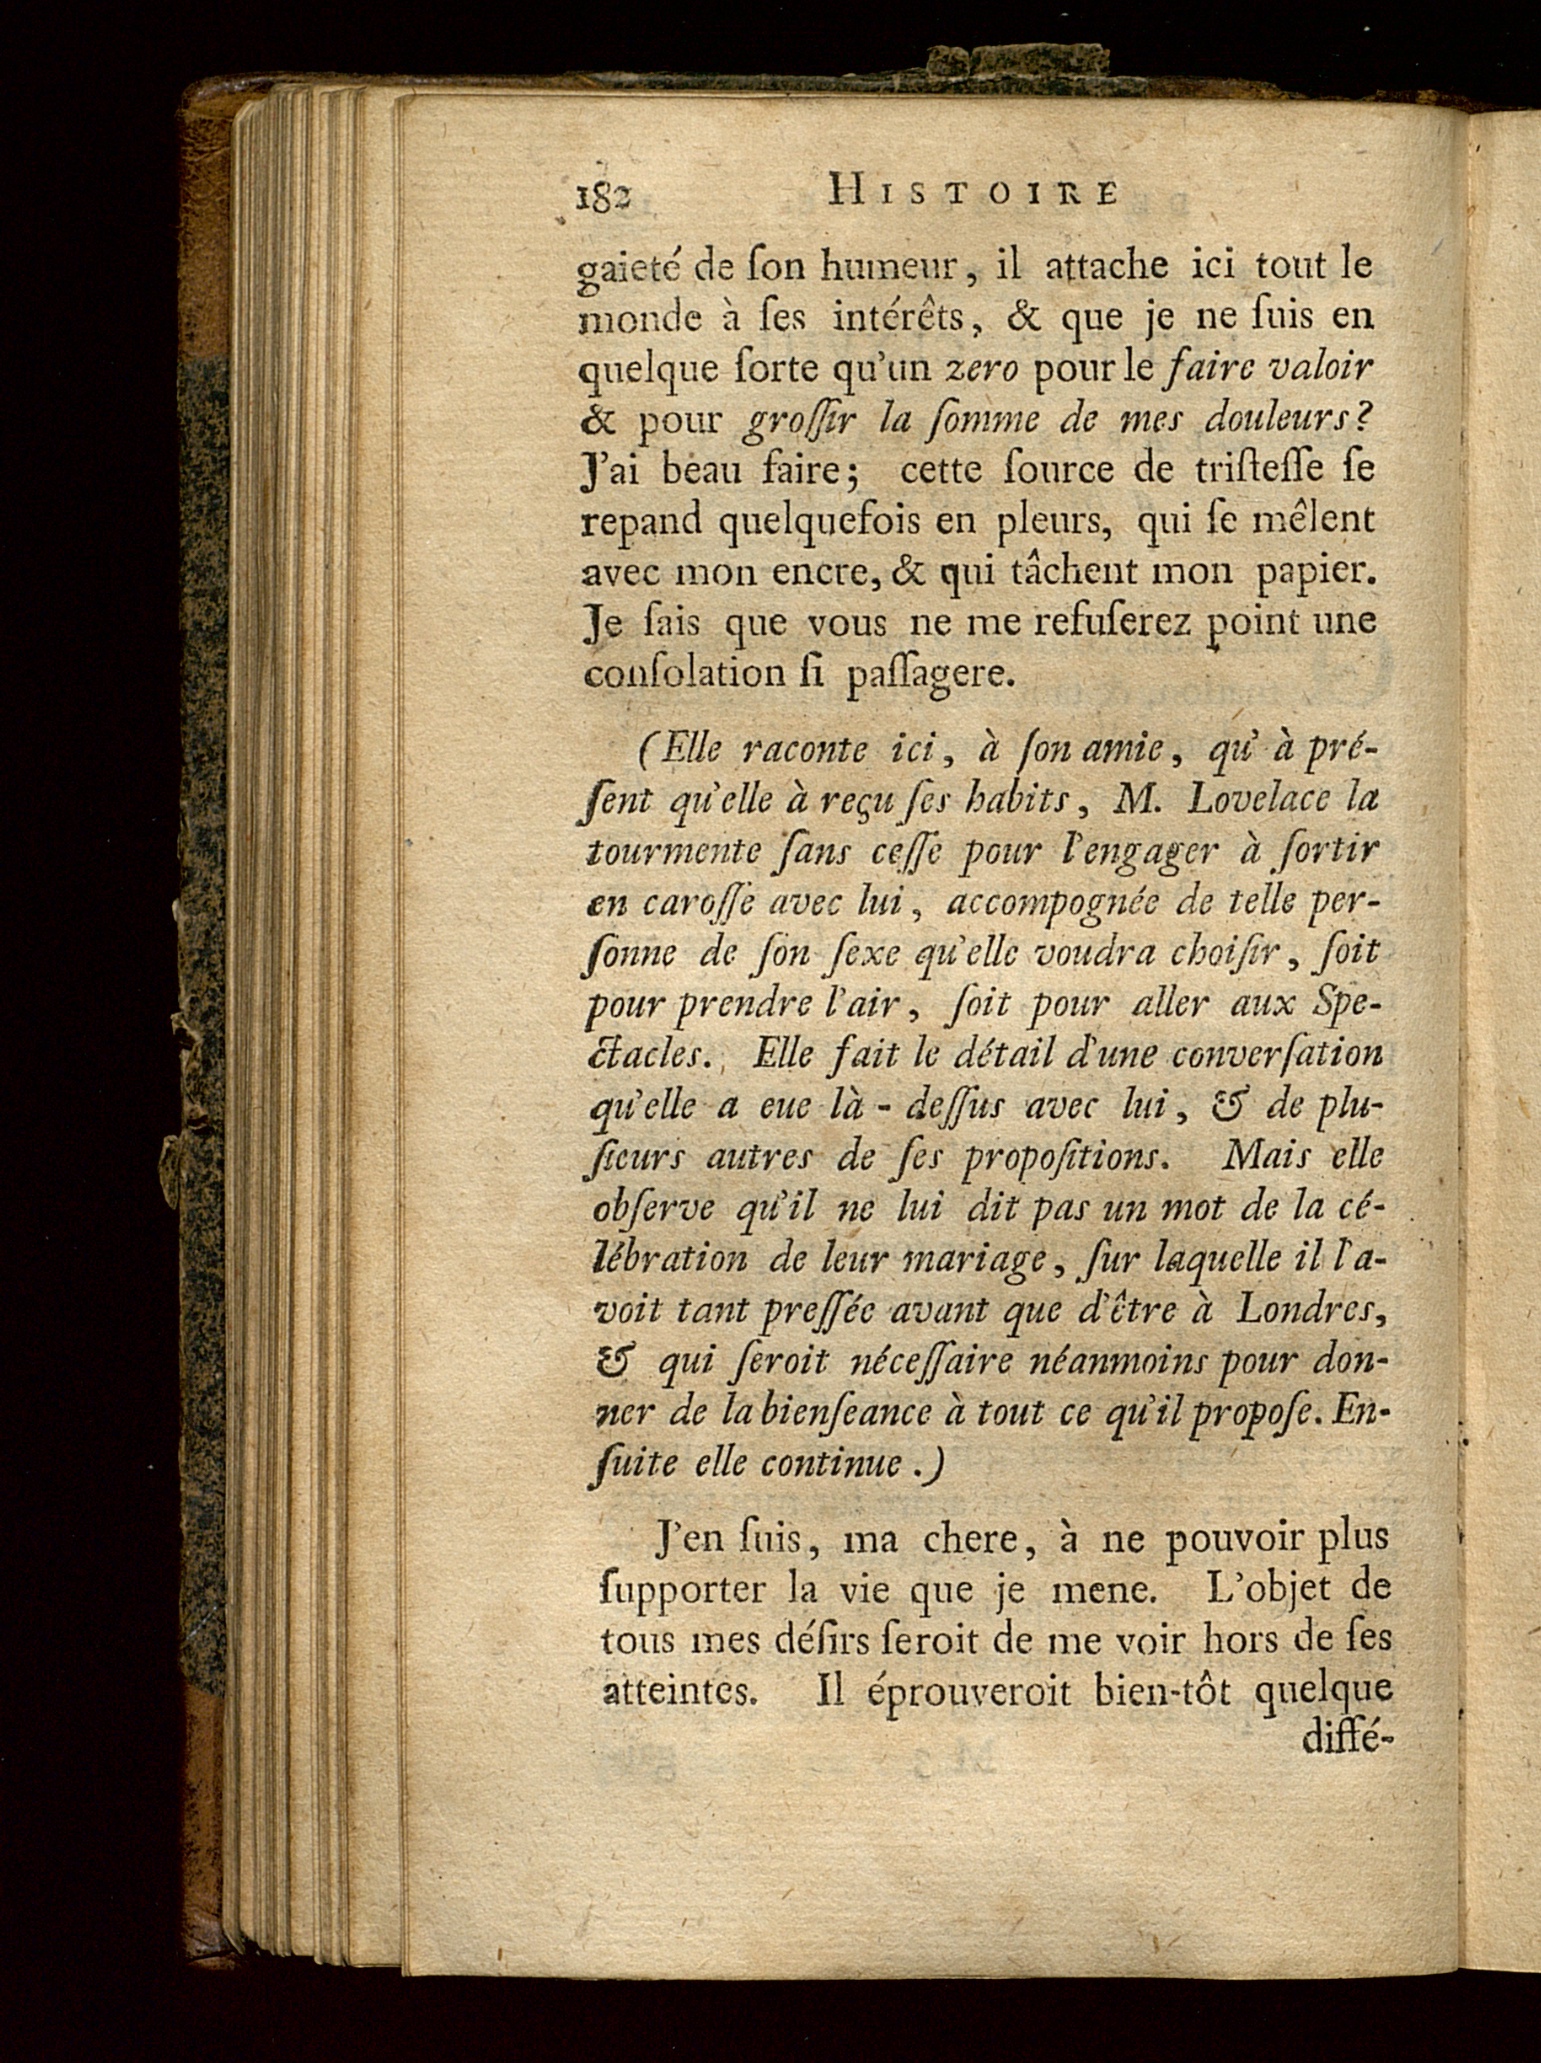 182 HISTOIRE
gaieté de ſon humeur, il attache ici tout le
monde à ſes intérêts, & que je ne ſuis en
quelque ſorte qu'un zero pour le faire valoir
& pour groſſir la ſomme de mes douleurs?
J'ai beau faire; cette ſource de triſteſſe ſe
repand quelquefois en pleurs, qui ſe mêlent
avec mon encre, & qui tâchent mon papier.
Je ſais que vous ne me refuſerez point une
conſolation ſi paſſagere.
(Elle raconte ici, à ſon amie, qu' à pré-
ſent qu'elle à reçu ſes habits, M. Lovelace la
tourmente ſans ceſſe pour l'engager à ſortir
en caroſſe avec lui, accompognée de telle per-
ſonne de ſon ſexe qu'elle voudra choiſir, ſoit
pour prendre l'air, ſoit pour aller aux Spe-
ctacles. Elle fait le détail d'une converſation
qu'elle a eue là - deſſus avec lui, & de plu-
ſieurs autres de ſes propoſitions. Mais elle
obſerve qu'il ne lui dit pas un mot de la cé-
lébration de leur mariage, ſur laquelle il l'a-
voit tant preſſée avant que d'être à Londres,
& qui ſeroit néceſſaire néanmoins pour don-
ner de la bienſeance à tout ce qu'il propoſe. En-
ſuite elle continue .)
J'en ſuis, ma chere, à ne pouvoir plus
ſupporter la vie que je mene. L'objet de
tous mes déſirs ſeroit de me voir hors de ſes
atteintes. Il éprouveroit bien-tôt quelque
diffé-